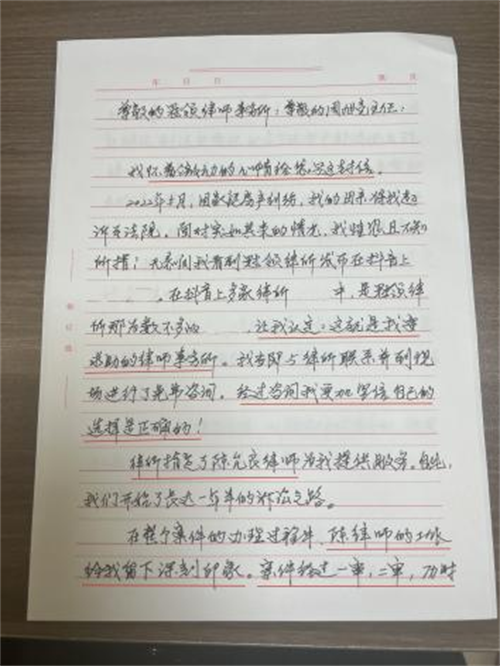 年 月 日
尊敬的 律师事务所,尊敬的周 主任:
我怀着激动的心情给您写这封信。
2022年 月,因家庭房产纠纷,我的 将我起
诉至法院。面对突如其来的情况,我惶恐且不知
所措!无意间我看到 律所发布在抖音上
,在抖音上多家律所 中,是 律
所那为数不多的 让我认定:这就是我要
求助的律师事务所。我当即与律所联系并到现
场进行了免费咨询。经过咨询我更加坚信自己的
选择是正确的!
律所指定了陈 律师为我提供服务。自此,
我们开始了长达一年半的诉讼之路。
在整个案件的办理过程中,陈律师的工作
给我留下深刻印象。案件经过一审,二审,历时